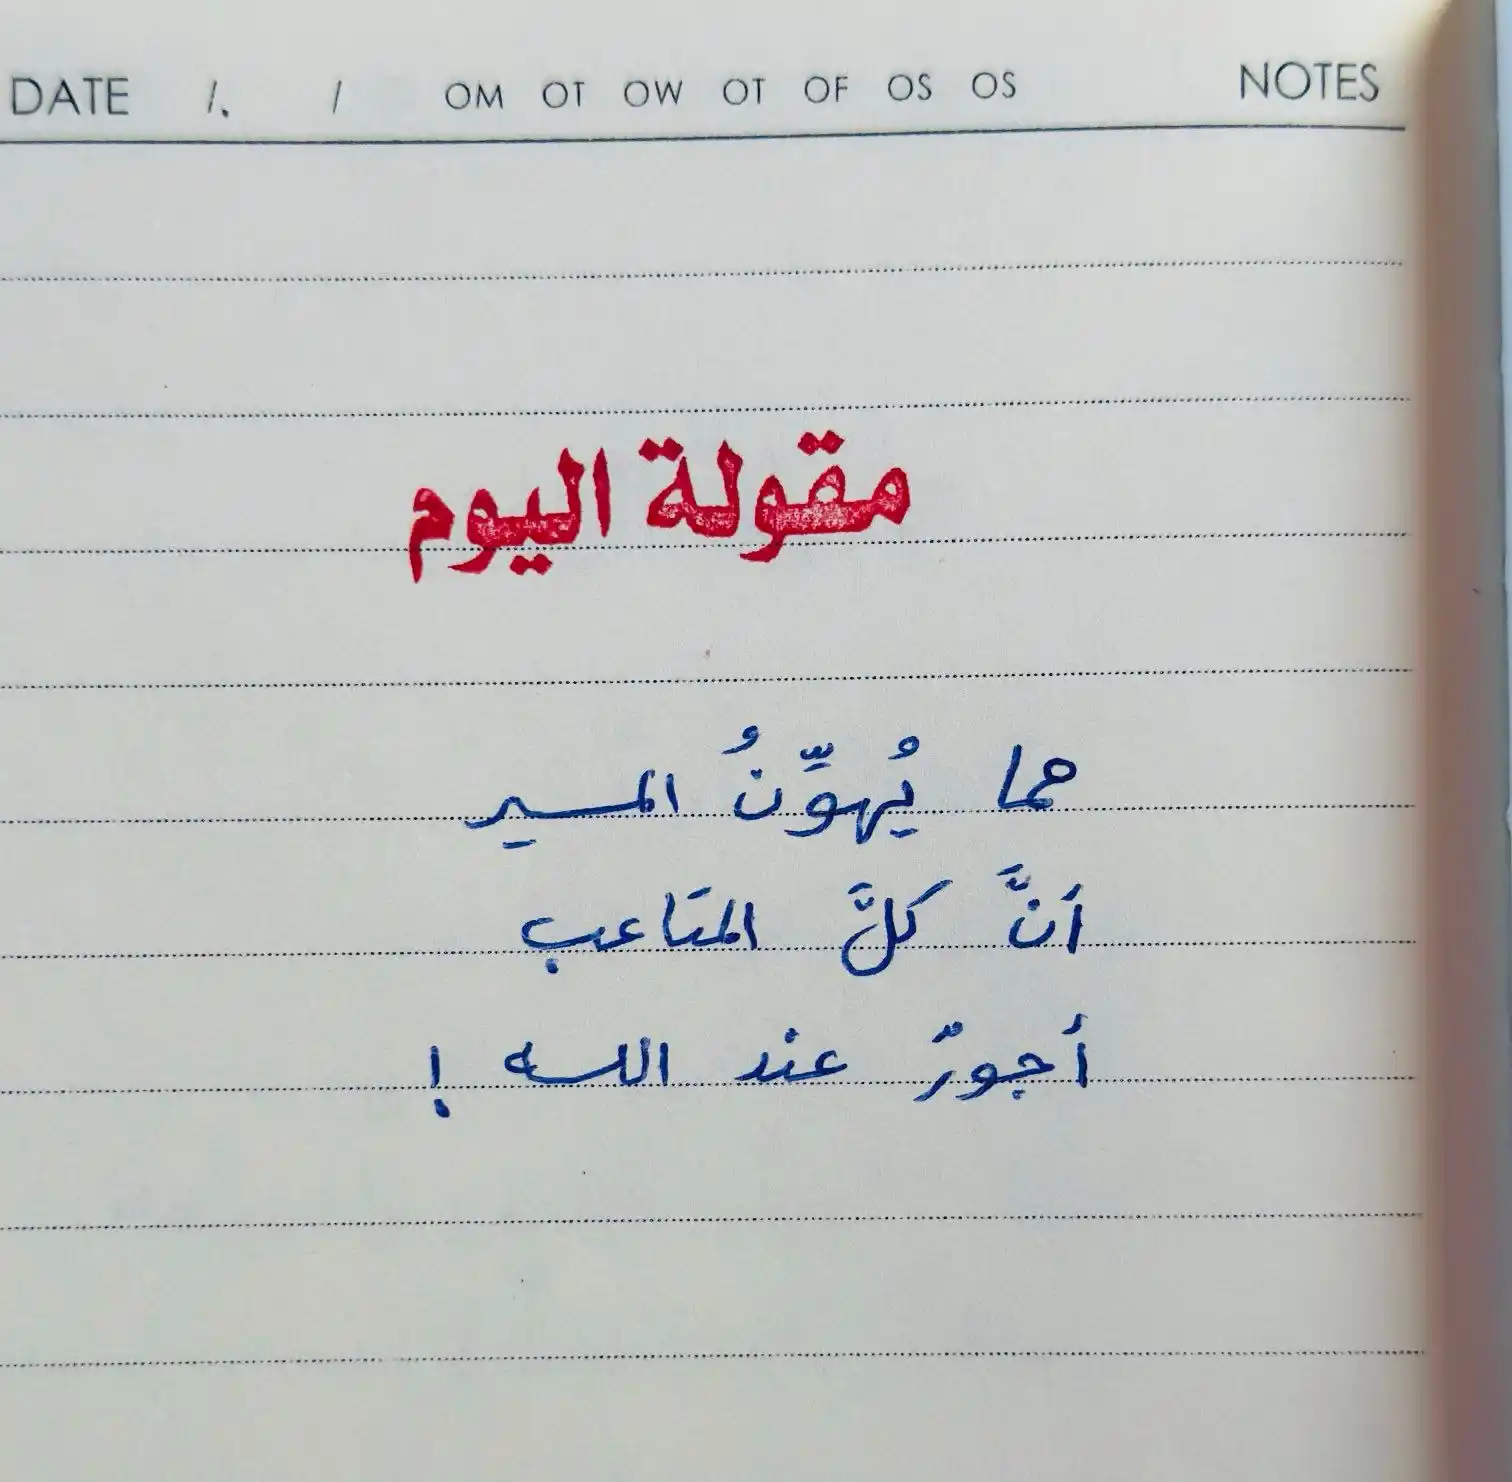 DATE / / OM OT OW OT OF OS OS NOTES
مقولة اليوم
مما يُهوِّنُ المسير
أنَّ كلَّ المتاعب
أجورٌ عند الله !